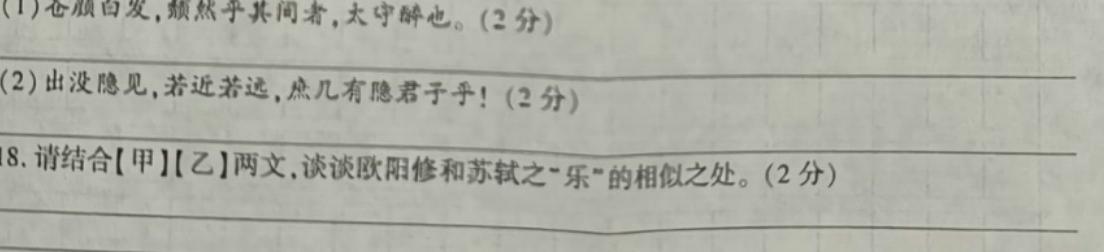 (1)苍颜白发,颓然乎其间者,太守醉也。(2分)
(2)出没隐见,若近若远,庶几有隐君子乎!(2分)
18.请结合【甲】【乙】两文,谈谈欧阳修和苏轼之“乐”的相似之处。(2分)